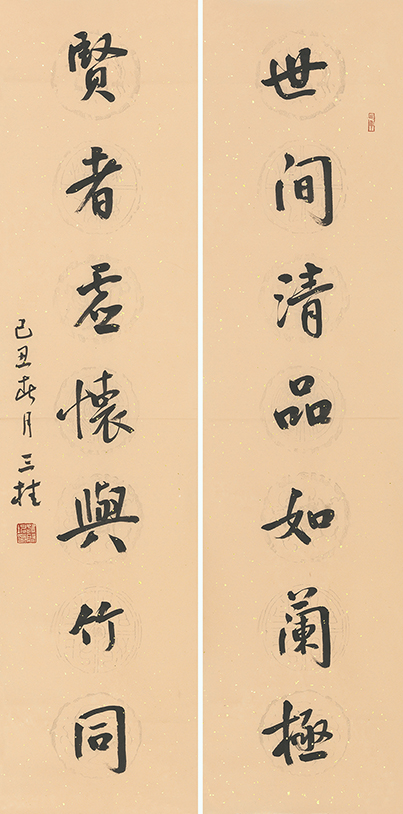 世间清品如蘭極
賢者虛懷與竹同
己丑春月三桂